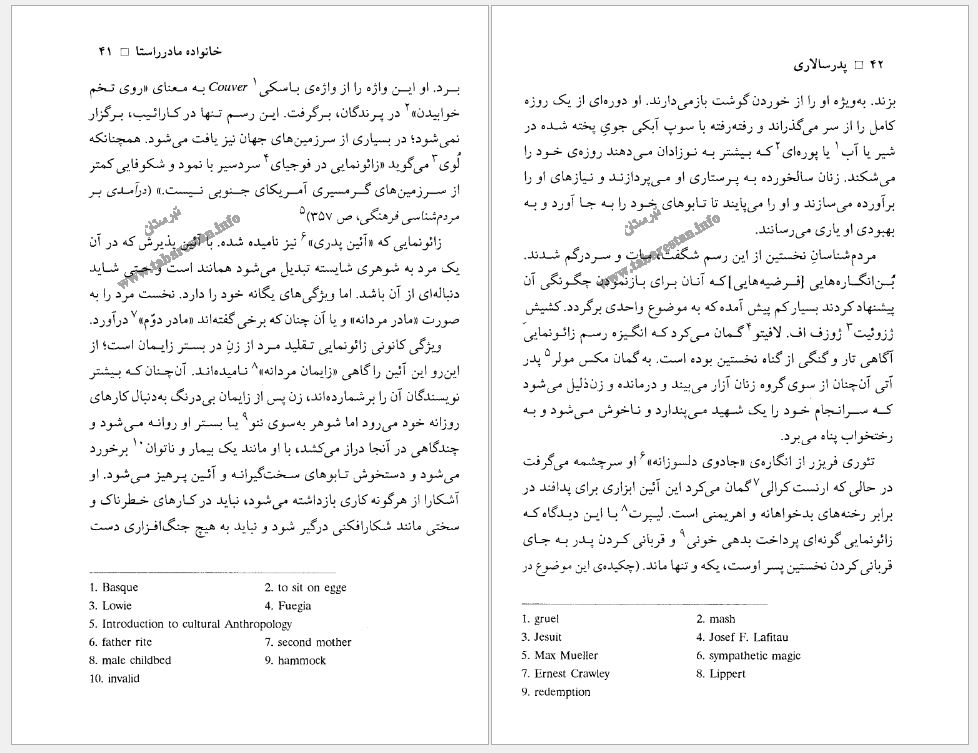 خانواده مادرراستا □ ۴۱
بـرد. او ایـن واژه را از واژه‌ی باسکی۱ Couver بـه معنای «روی تخم
خوابیدن»۲ در پرندگان، برگرفت. این رسم تنها در کارائیب، برگزار
نمی‌شود؛ در بسیاری از سرزمین‌های جهان نیز یافت می‌شود. همچنانکه
لُوی۳ می‌گوید «زائونمایی در فوجیای۴ سردسیر با نمود و شکوفایی کمتر
از سـرزمین‌های گـرمسیری آمـریکای جنـوبی نیـست.» (درآمـدی بـر
مردم‌شناسی فرهنگی، ص ۳۵۷)۵
زائونمایی که «آئین پدری»۶ نیز نامیده شده. با آئین پذیرش که در آن
یک مرد به شوهری شایسته تبدیل می‌شود همانند است و حتی شاید
دنباله‌ای از آن باشد. اما ویژگی‌های یگانه خود را دارد. نخست مرد را به
صورت «مادر مردانه» و یا آن چنان که برخی گفته‌اند «مادر دوّم»۷ درآورد.
ویژگی کانونی زائونمایی تقلید مرد از زن در بستر زایمان است؛ از
این‌رو این آئین را گاهی «زایمان مردانه»۸ نامیده‌اند. آن‌چنان که بیشتر
نویسندگان آن را برشمارده‌اند، زن پس از زایمان بی‌درنگ به‌دنبال کارهای
روزانه خود می‌رود اما شوهر به‌سوی ننو۹ یا بستر او روانه می‌شود و
چندگاهی در آنجا دراز می‌کشد، با او مانند یک بیمار و ناتوان۱۰ برخورد
می‌شود و دستخوش تابوهای سخت‌گیرانه و آئین پرهیز می‌شود. او
آشکارا از هرگونه کاری بازداشته می‌شود، نباید در کارهای خطرناک و
سختی مانند شکارافکنی درگیر شود و نباید به هیچ جنگ‌افزاری دست
1. Basque 2. to sit on egge
3. Lowie 4. Fuegia
5. Introduction to cultural Anthropology
6. father rite 7. second mother
8. male childbed 9. hammock
10. invalid
تبرستان
www.tabarestan.info
۴۲ □ پدرسالاری
بزند. به‌ویژه او را از خوردن گوشت بازمی‌دارند. او دوره‌ای از یک روزه
کامل را از سر می‌گذراند و رفته‌رفته با سوپ آبکی جوي پخته شده در
شیر یا آب۱ یا پوره‌ای۲ که بیشتر به نوزادان می‌دهند روزه‌ی خود را
می‌شکند. زنان سالخورده به پرستاری او می‌پردازند و نیازهای او را
برآورده می‌سازند و او را می‌پایند تا تابوهای خود را به جا آورد و به
بهبودی او یاری می‌رسانند.
مردم‌شناسانِ نخستین از این رسم شگفت، مات و سردرگم شدند.
بُن‌انگاره‌هایی [فرضیه‌هایی] که آنان برای بازنمودن چگونگی آن
پیشنهاد کردند بسیار کم پیش آمده که به موضوع واحدی برگردد. کشیش
ژزوئیت۳ ژوزف اف. لافیتو۴ گمان می‌کرد که انگیزه رسم زائونمایی
آگاهی تار و گنگی از گناه نخستین بوده است. به گمان مکس مولر۵ پدر
آتی آن‌چنان از سوی گروه زنان آزار می‌بیند و درمانده و زن‌ذلیل می‌شود
کـه سـرانجام خـود را یـک شهـید مـی‌پندارد و ناخوش می‌شود و به
رختخواب پناه می‌برد.
تئوری فریزر از انگاره‌ی «جادوی دلسوزانه»۶ او سرچشمه می‌گرفت
در حالی که ارنست کرالی۷ گمان می‌کرد این آئین ابزاری برای پدافند در
برابر رخنه‌های بدخواهانه و اهریمنی است. لیپرت۸ با این دیدگاه که
زائونمایی گونه‌ای پرداخت بدهی خونی۹ و قربانی کردن پدر به جای
قربانی کردن نخستین پسر اوست، یکه و تنها ماند. (چکیده‌ی این موضوع در
1. gruel 2. mash
3. Jesuit 4. Josef F. Lafitau
5. Max Mueller 6. sympathetic magic
7. Ernest Crawley 8. Lippert
9. redemption
تبرستان
www.tabarestan.info